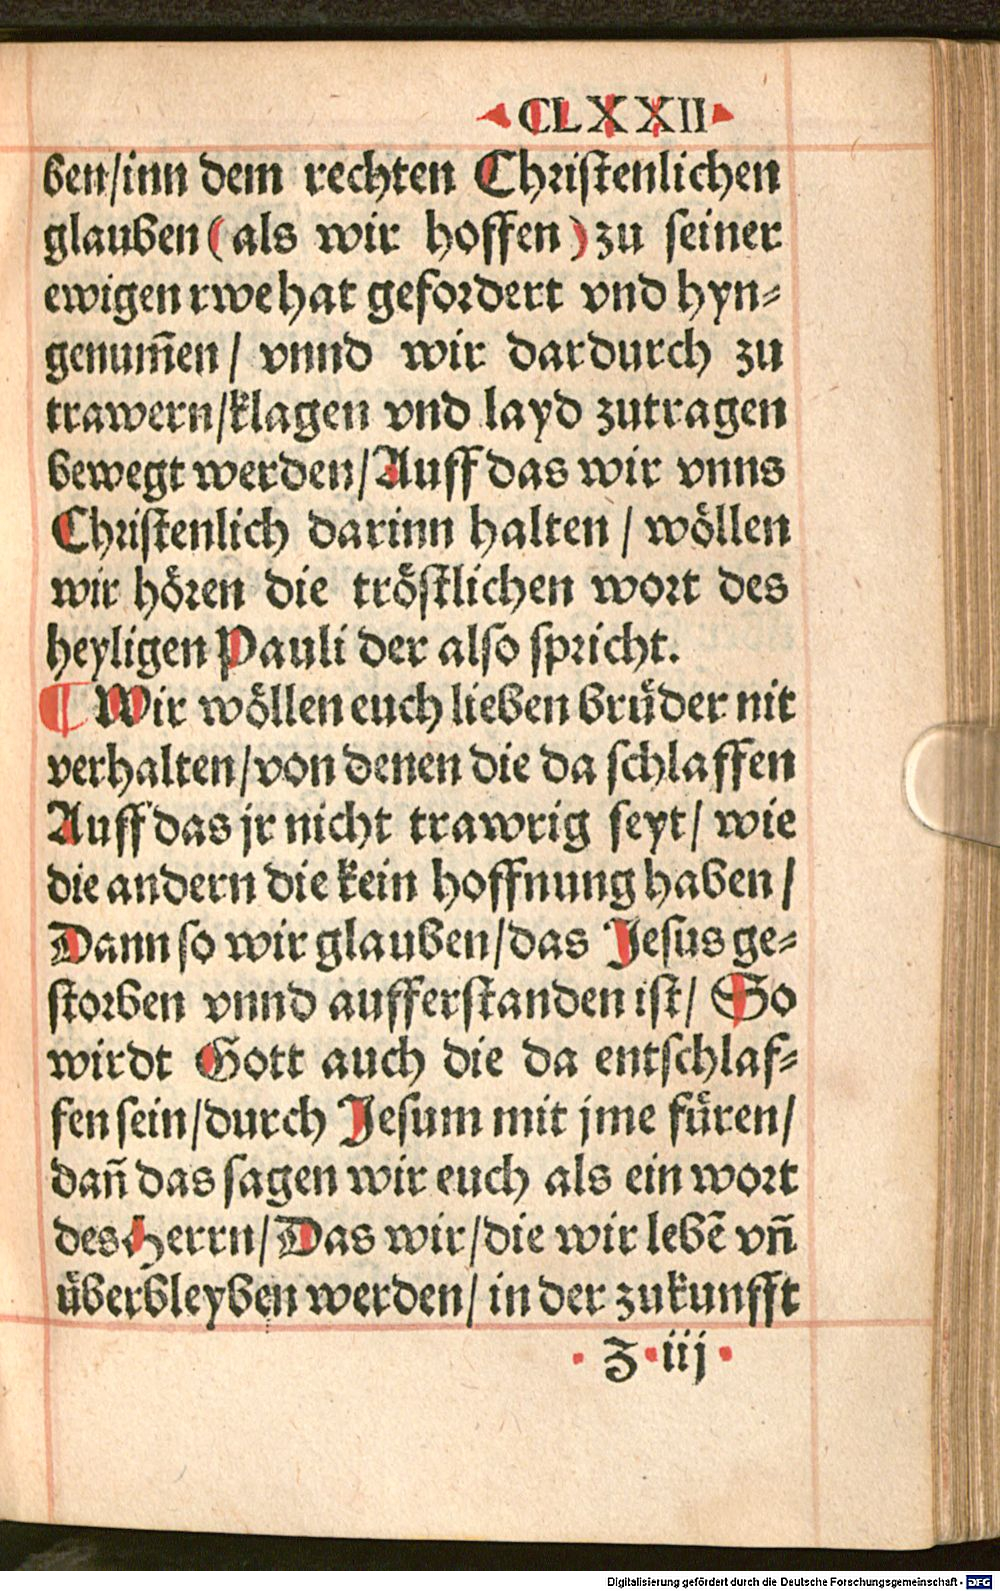 CLXXII
ben/inn dem rechten Christenlichen
glauben (als wir hoffen) zu seiner
ewigen rwe hat gefordert vnd hyn-
genum̃en / vnnd wir dardurch zu
trawern/klagen vnd layd zutragen
bewegt werden/Auff das wir vnns
Christenlich darinn halten / wöllen
wir hören die tröstlichen wort des
heyligen Pauli der also spricht.
¶ Wir wöllen euch lieben brüder nit
verhalten/von denen die da schlaffen
Auff das jr nicht trawrig seyt/ wie
die andern die kein hoffnung haben/
Dann so wir glauben/das Jesus ge-
storben vnnd aufferstanden ist/ So
wirdt Gott auch die da entschlaf-
fen sein/durch Jesum mit jme füren/
dañ das sagen wir euch als ein wort
des Herrn/Das wir/die wir lebẽ vñ
überbleyben werden/ in der zukunfft
Z iij
Digitalisierung gefördert durch die Deutsche Forschungsgemeinschaft - DFG